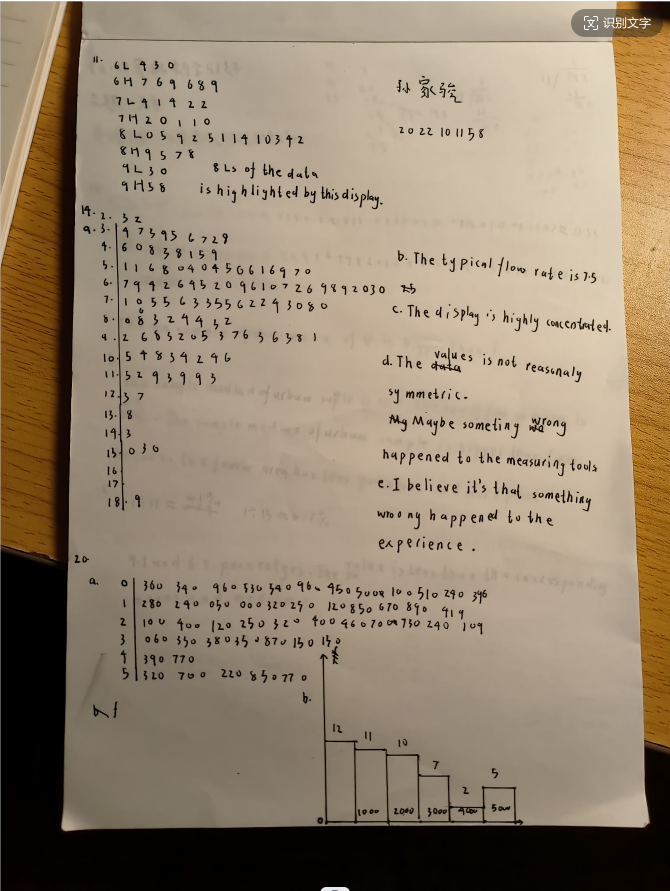 识别文字
11.
6L 4 3 0
6H 7 6 9 6 8 9
7L 4 1 4 2 2
7H 2 0 1 1 0
8L 0 5 9 2 5 1 1 4 1 0 3 4 2
8H 9 5 7 8
9L 3 0
9H 5 8
8Ls of the data
is highlighted by this display.
孙家骏
2022101158
14.
a.
2. 3 2
3. 4 7 3 9 5 6 7 2 9
4. 6 0 8 3 8 1 5 9
5. 1 1 6 8 0 4 0 4 5 6 6 1 6 9 7 0
6. 7 9 4 2 6 4 5 2 0 9 6 1 0 7 2 6 9 8 9 2 0 3 0
7. 1 0 5 5 6 3 3 5 5 6 2 2 4 3 0 8 0
8. 8 3 2 4 4 3 2
9. 2 6 8 3 2 0 5 3 7 6 3 6 3 8 1
10. 5 4 8 3 4 2 4 6
11. 5 2 9 3 9 9 3
12. 3 7
13. 8
14. 3
15. 0 3 0
16
17.
18. 9
b. The typical flow rate is 7.5
c. The display is highly concentrated.
d. The values is not reasonaly
symmetric.
Maybe someting wrong
happened to the measuring tools
e. I believe it's that something
wroong happened to the
experience.
20.
a.
0 360 340 960 530 540 960 450 500 100 510 240 396
1 280 240 050 000 320 250 120 850 670 890 419
2 100 400 120 250 320 400 460 700 730 240 109
3 060 330 380 350 870 150 150
4 390 770
5 320 700 220 850 770
b.
12 11 10 7 2 5
0 1000 2000 3000 4000 5000